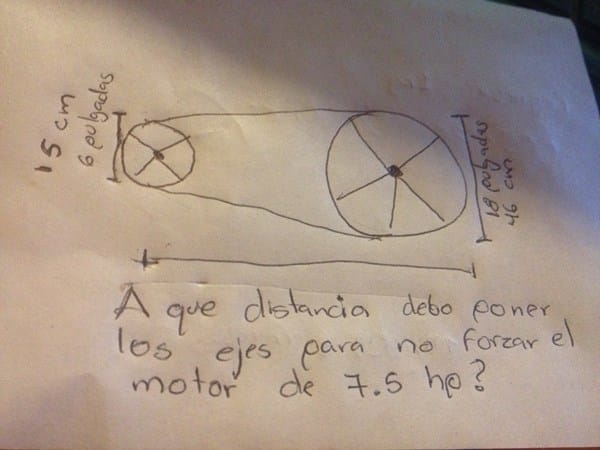 15 cm
6 pulgadas
18 pulgadas
46 cm
A que distancia debo poner
los ejes para no forzar el
motor de 7.5 hp?